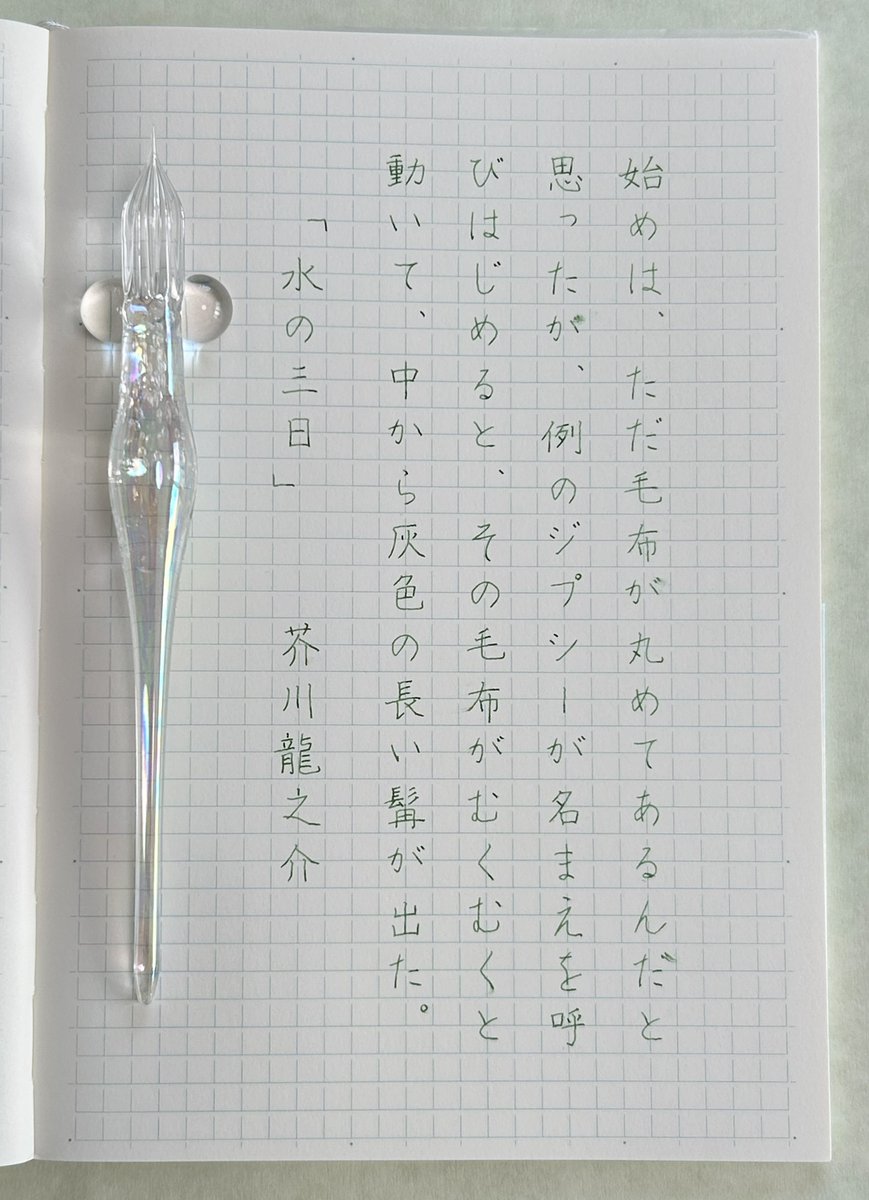 始めは、ただ毛布が丸めてあるんだと
思ったが、例のジプシーが名まえを呼
びはじめると、その毛布がむくむくと
動いて、中から灰色の長い髯が出た。
「水の三日」 芥川龍之介